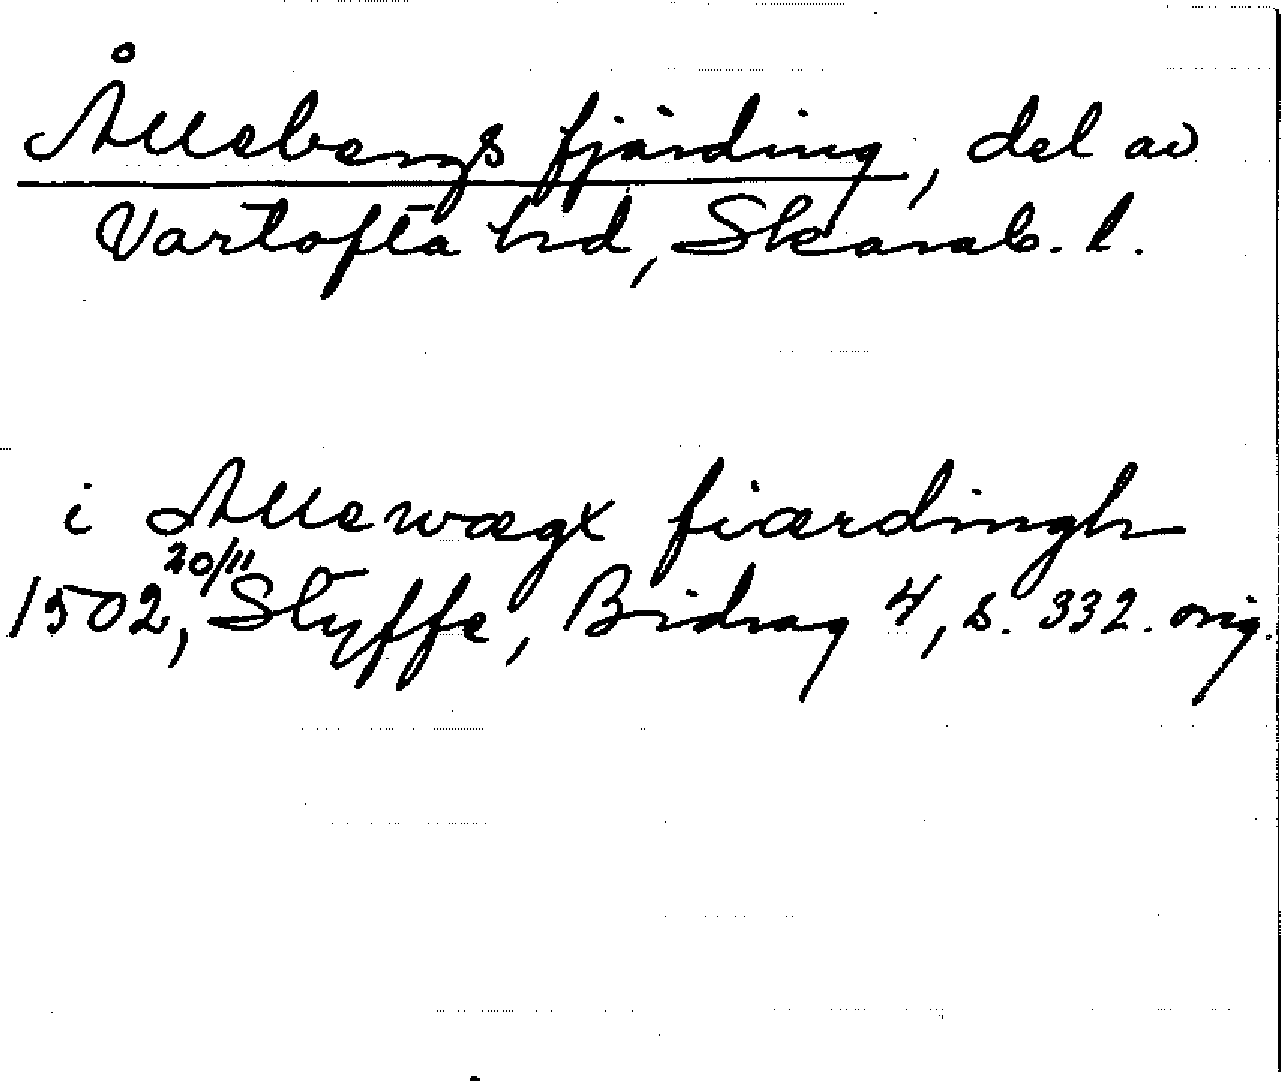 Ållebergs fjärding, del av
Vartofta hrd, Skarab. l.
i Allewægx fiærdingh
1502, 20/11 Styffe, Bidrag 4, s. 332. orig.